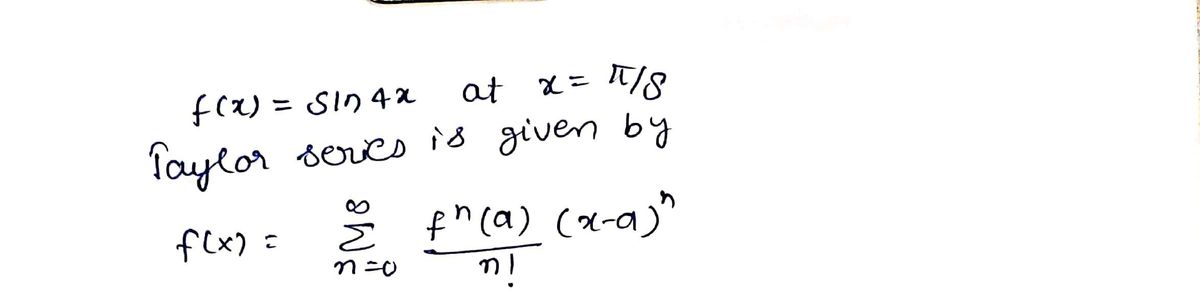 f(x) = sin 4x at x = π/8
Taylor series is given by
f(x) = ∞ Σ n=0 fⁿ(a) (x-a)ⁿ / n!